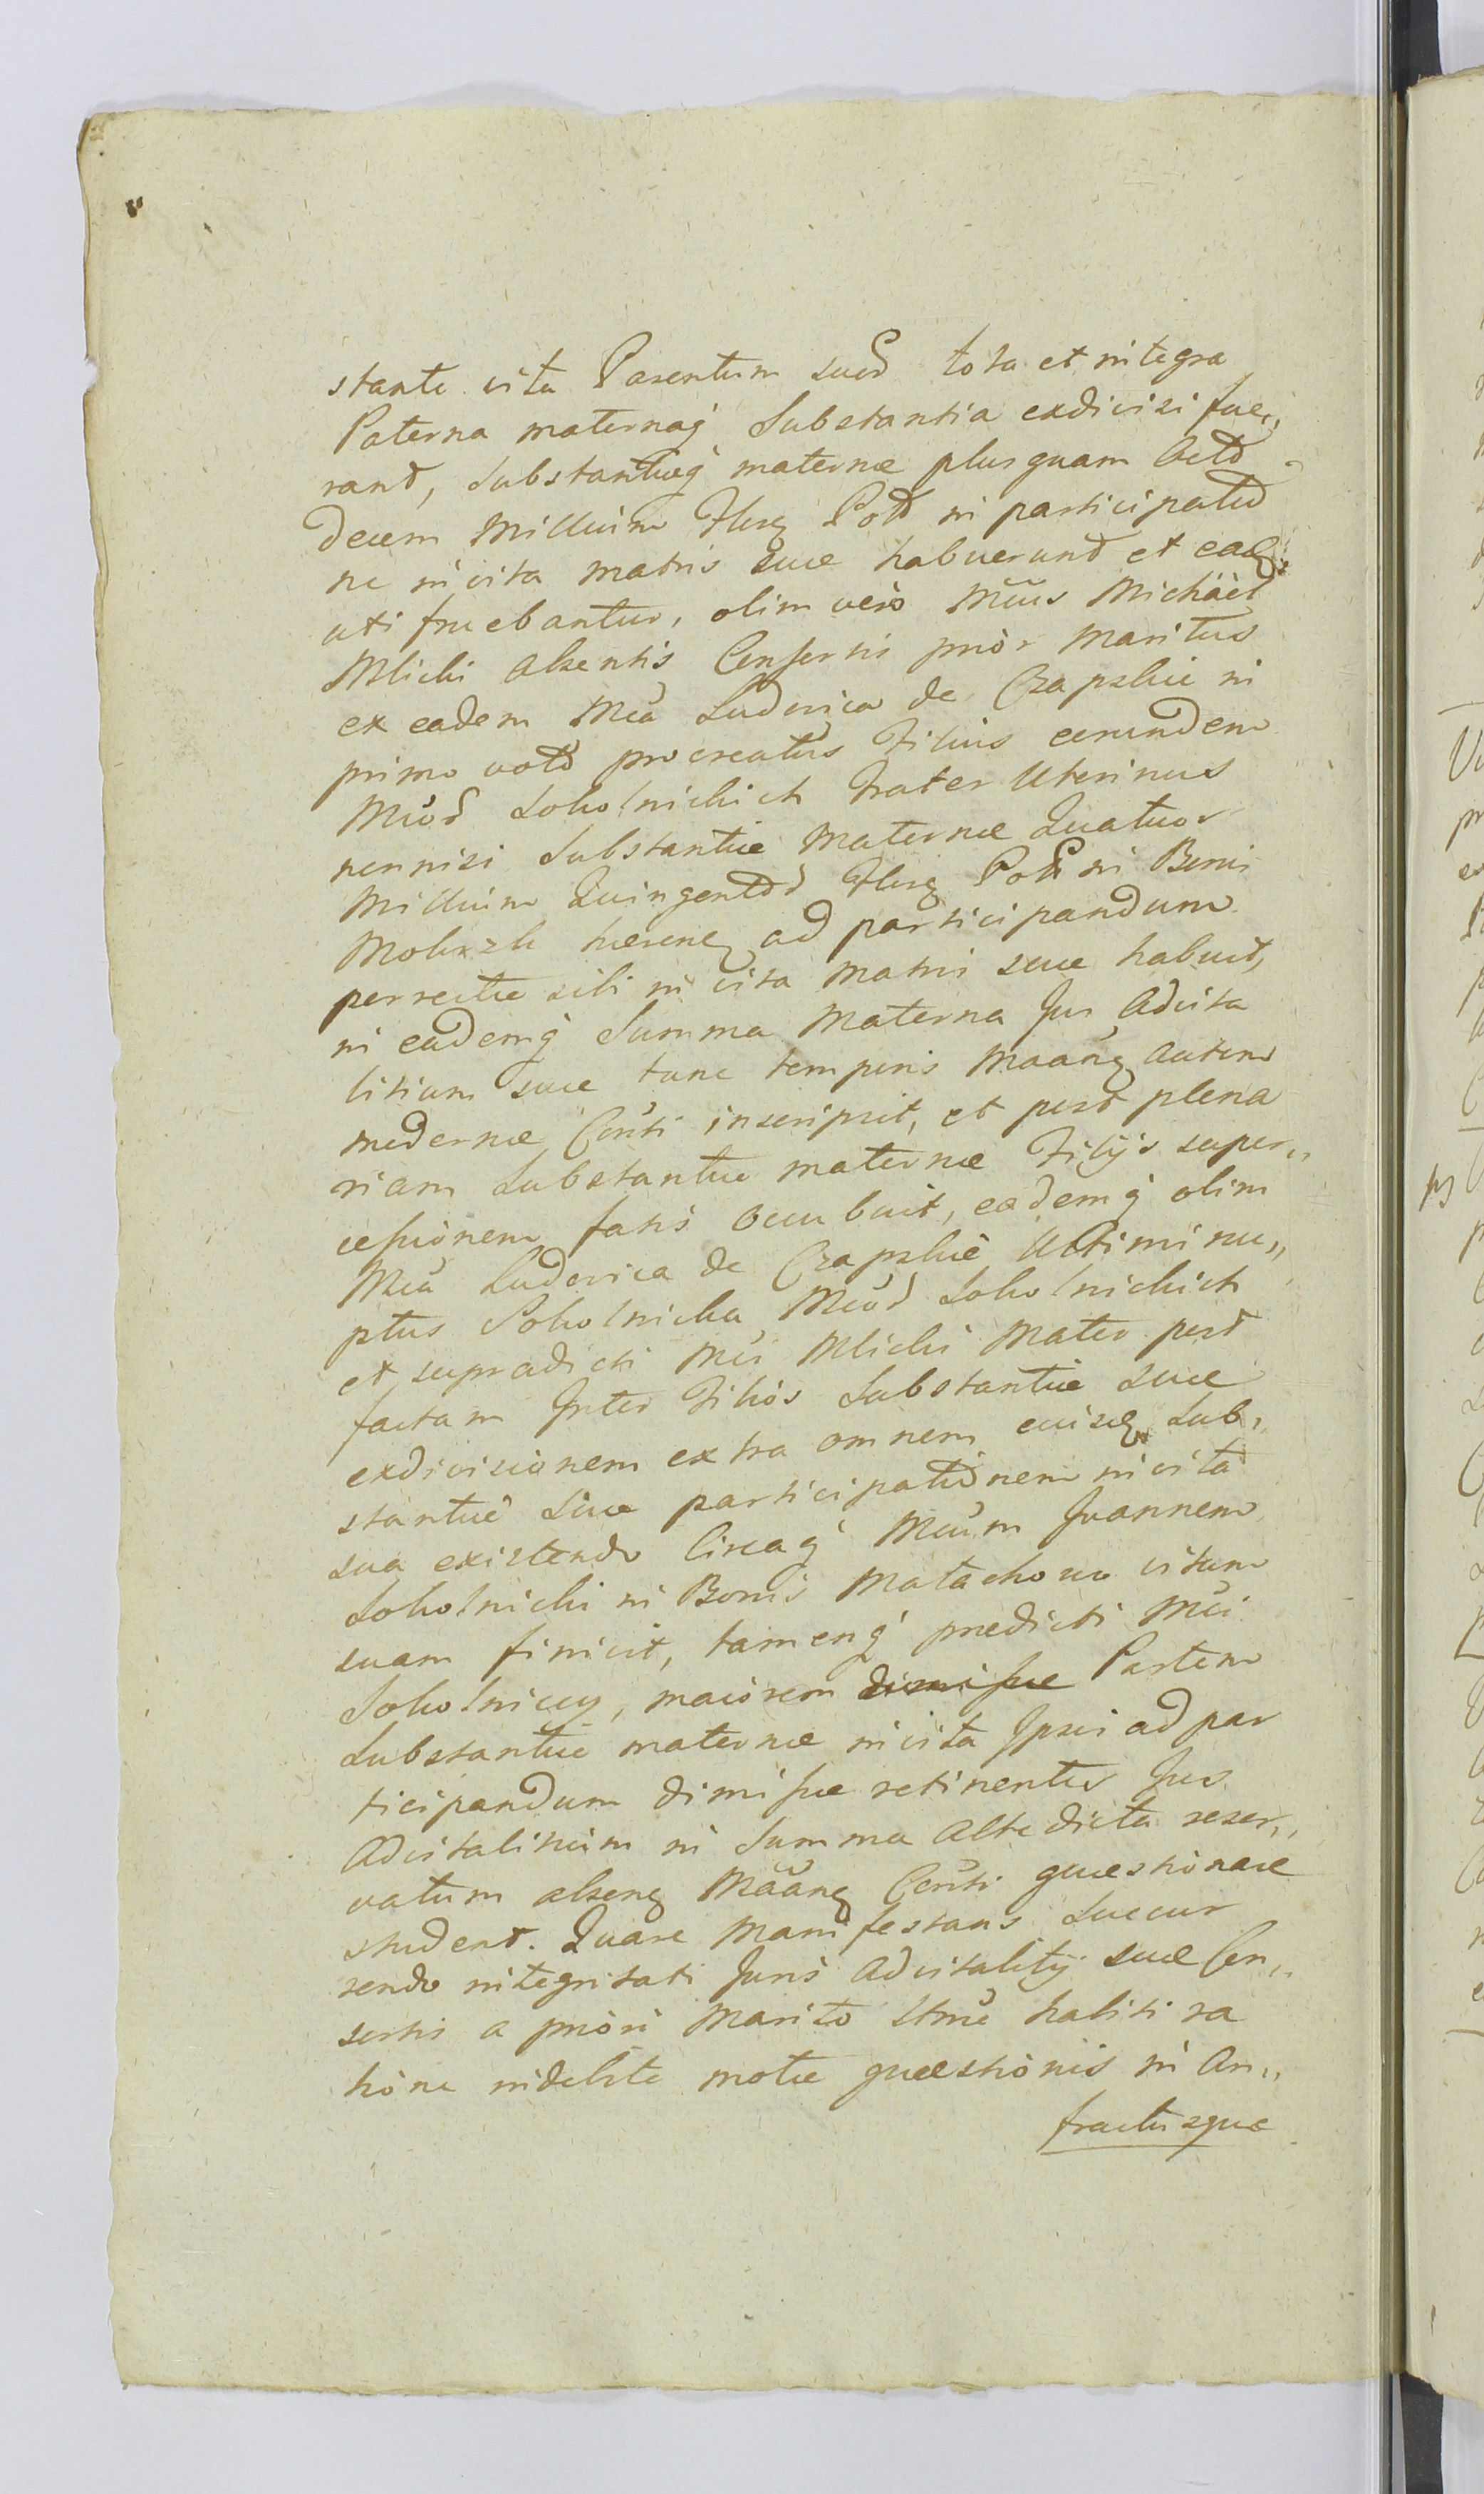 stante vita Parentum suod tota et integra
Paterna maternaq́ Substantia exdivisi fue,,
rant, Substantiæq́ maternæ plusquam Octo
decem Millium Flor. Pol. in participatio
ne in vita matris suæ habuerunt et eaq.
uti fruebantur, olim verò Mũus Michäel
Mlicki absentis Consortis priòr Maritus
ex eadem Mũa Ludovica de Czapskie in
primo voto procreatus Filius eorundem
Mũod Sokolnickich Frater Uterinus
nonnisi Substantiæ Maternæ Quatuor
Millium Quingentod Flor. Pol. in Bonis
Mokrzk hærenq ad participandum
perrectæ sibi in vita Matris suæ habuit,
in eademq́ Summa Materna Jus Advita
litium suæ tunc temporis Maanq autem
modernæ Conti inscripsit, et post plena
riam Substantiæ maternæ Filijs super,,
cessionem fatis occubuit, eademq́ olim
Mũa Ludovica de Czapskie Ultimi nu,,
ptus Sokolnicka Mũod Sokolnickich
et supradicti Mũi Mlicki Mater post
factam Inter Filiòs Substantiæ suæ
exdivisionem extra omnem eiusq Sub,,
stantiæ suæ participationem in vita
sua existendo Circaq́ Mũum Joannem
Sokolnicki in Bonis Matachowo vitam
suam finivit, tamenq́ prædicti Mũi
Sokolniccy, maiorem dimissæ Partem
Substantiæ maternæ in vita Ipsis ad par
ticipandum dimissæ retinentes Jus
Advitalitium in Summa Alte dicta reser,,
vatum absenq Mäanq Conti quæstionare
student. Quare Manifestans Succur
rendo integritati Juris Advitalitij suæ Con,,
sortis a priòri Marito Ltme habiti ra
tiòne indebite motæ quæstiònis in An,,
fractusque